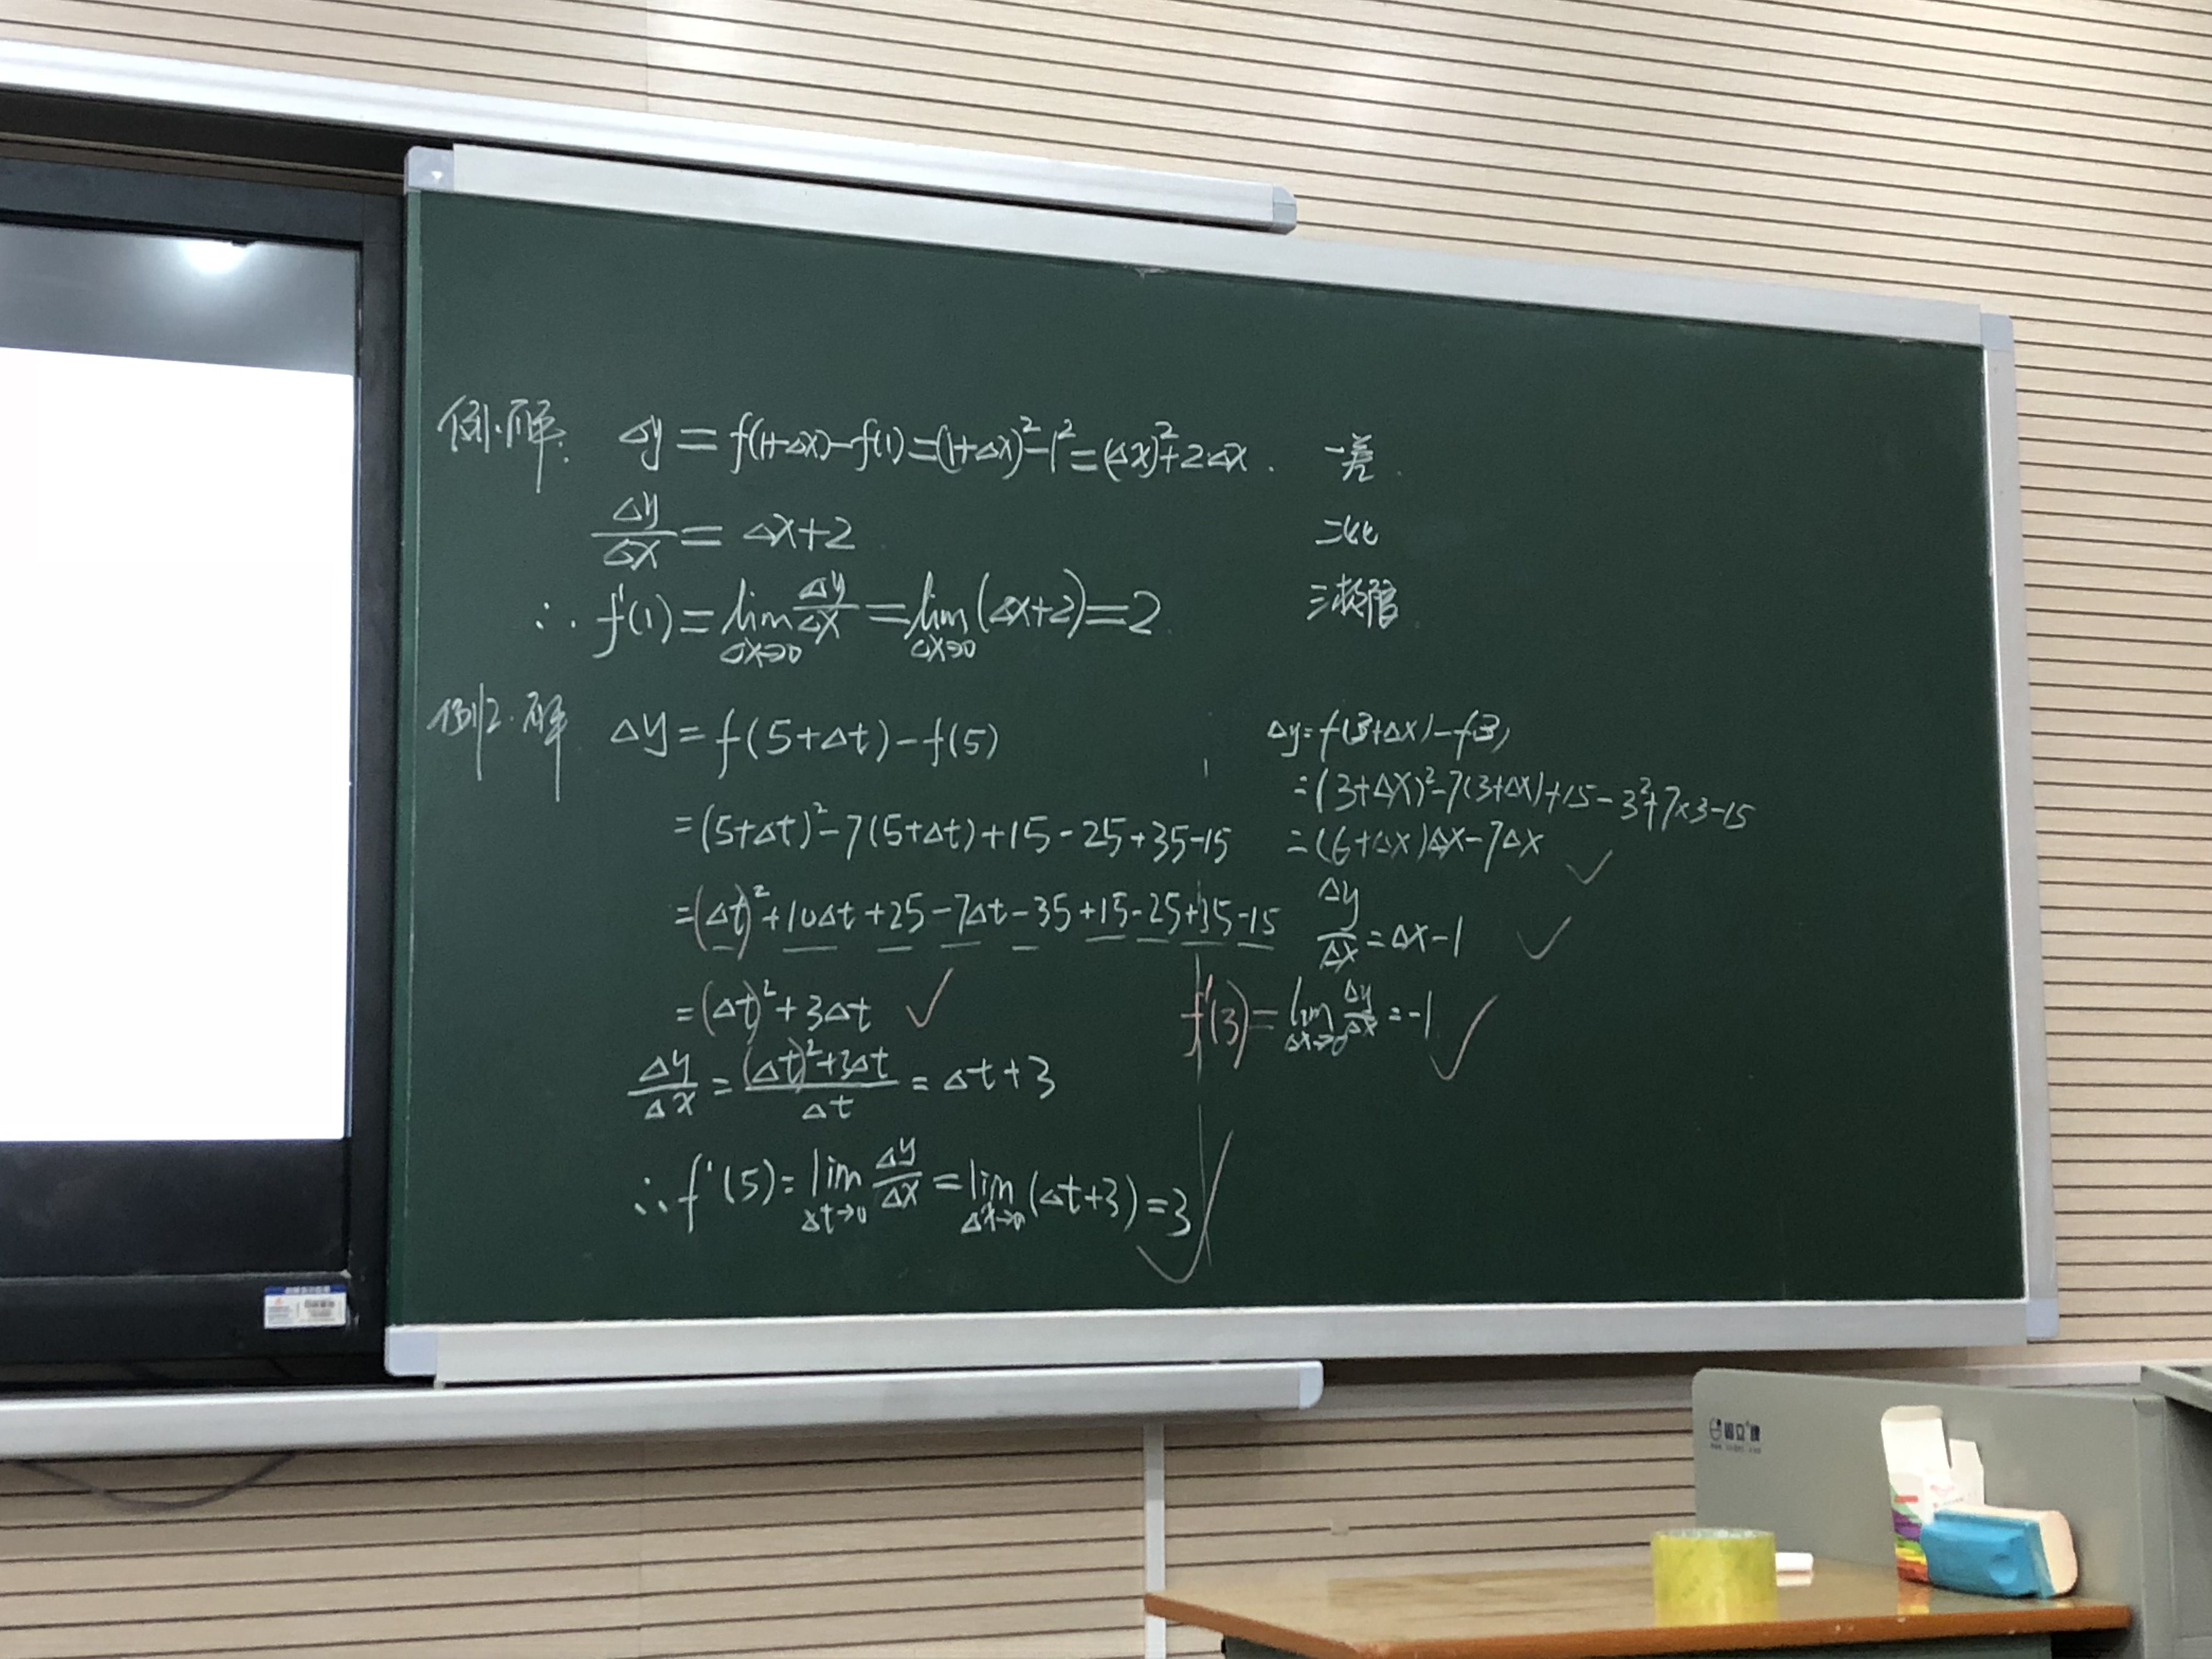 例1.解: Δy=f(1+Δx)-f(1)=(1+Δx)²-1²=(Δx)²+2Δx. 一差.
Δy/Δx=Δx+2 二比
∴f'(1)=lim_{Δx→0} Δy/Δx=lim_{Δx→0}(Δx+2)=2 三极限
例2.解 Δy=f(5+Δt)-f(5)
=(5+Δt)²-7(5+Δt)+15-25+35-15
=(Δt)²+10Δt+25-7Δt-35+15-25+35-15
=(Δt)²+3Δt ✓
Δy/Δx=((Δt)²+3Δt)/Δt=Δt+3
∴f'(5)=lim_{Δt→0} Δy/Δx=lim_{Δt→0}(Δt+3)=3 ✓
Δy=f(3+Δx)-f(3)
=(3+Δx)²-7(3+Δx)+15-3²+7×3-15
=(6+Δx)Δx-7Δx ✓
Δy/Δx=Δx-1 ✓
f'(3)=lim_{Δx→0} Δy/Δx=-1 ✓